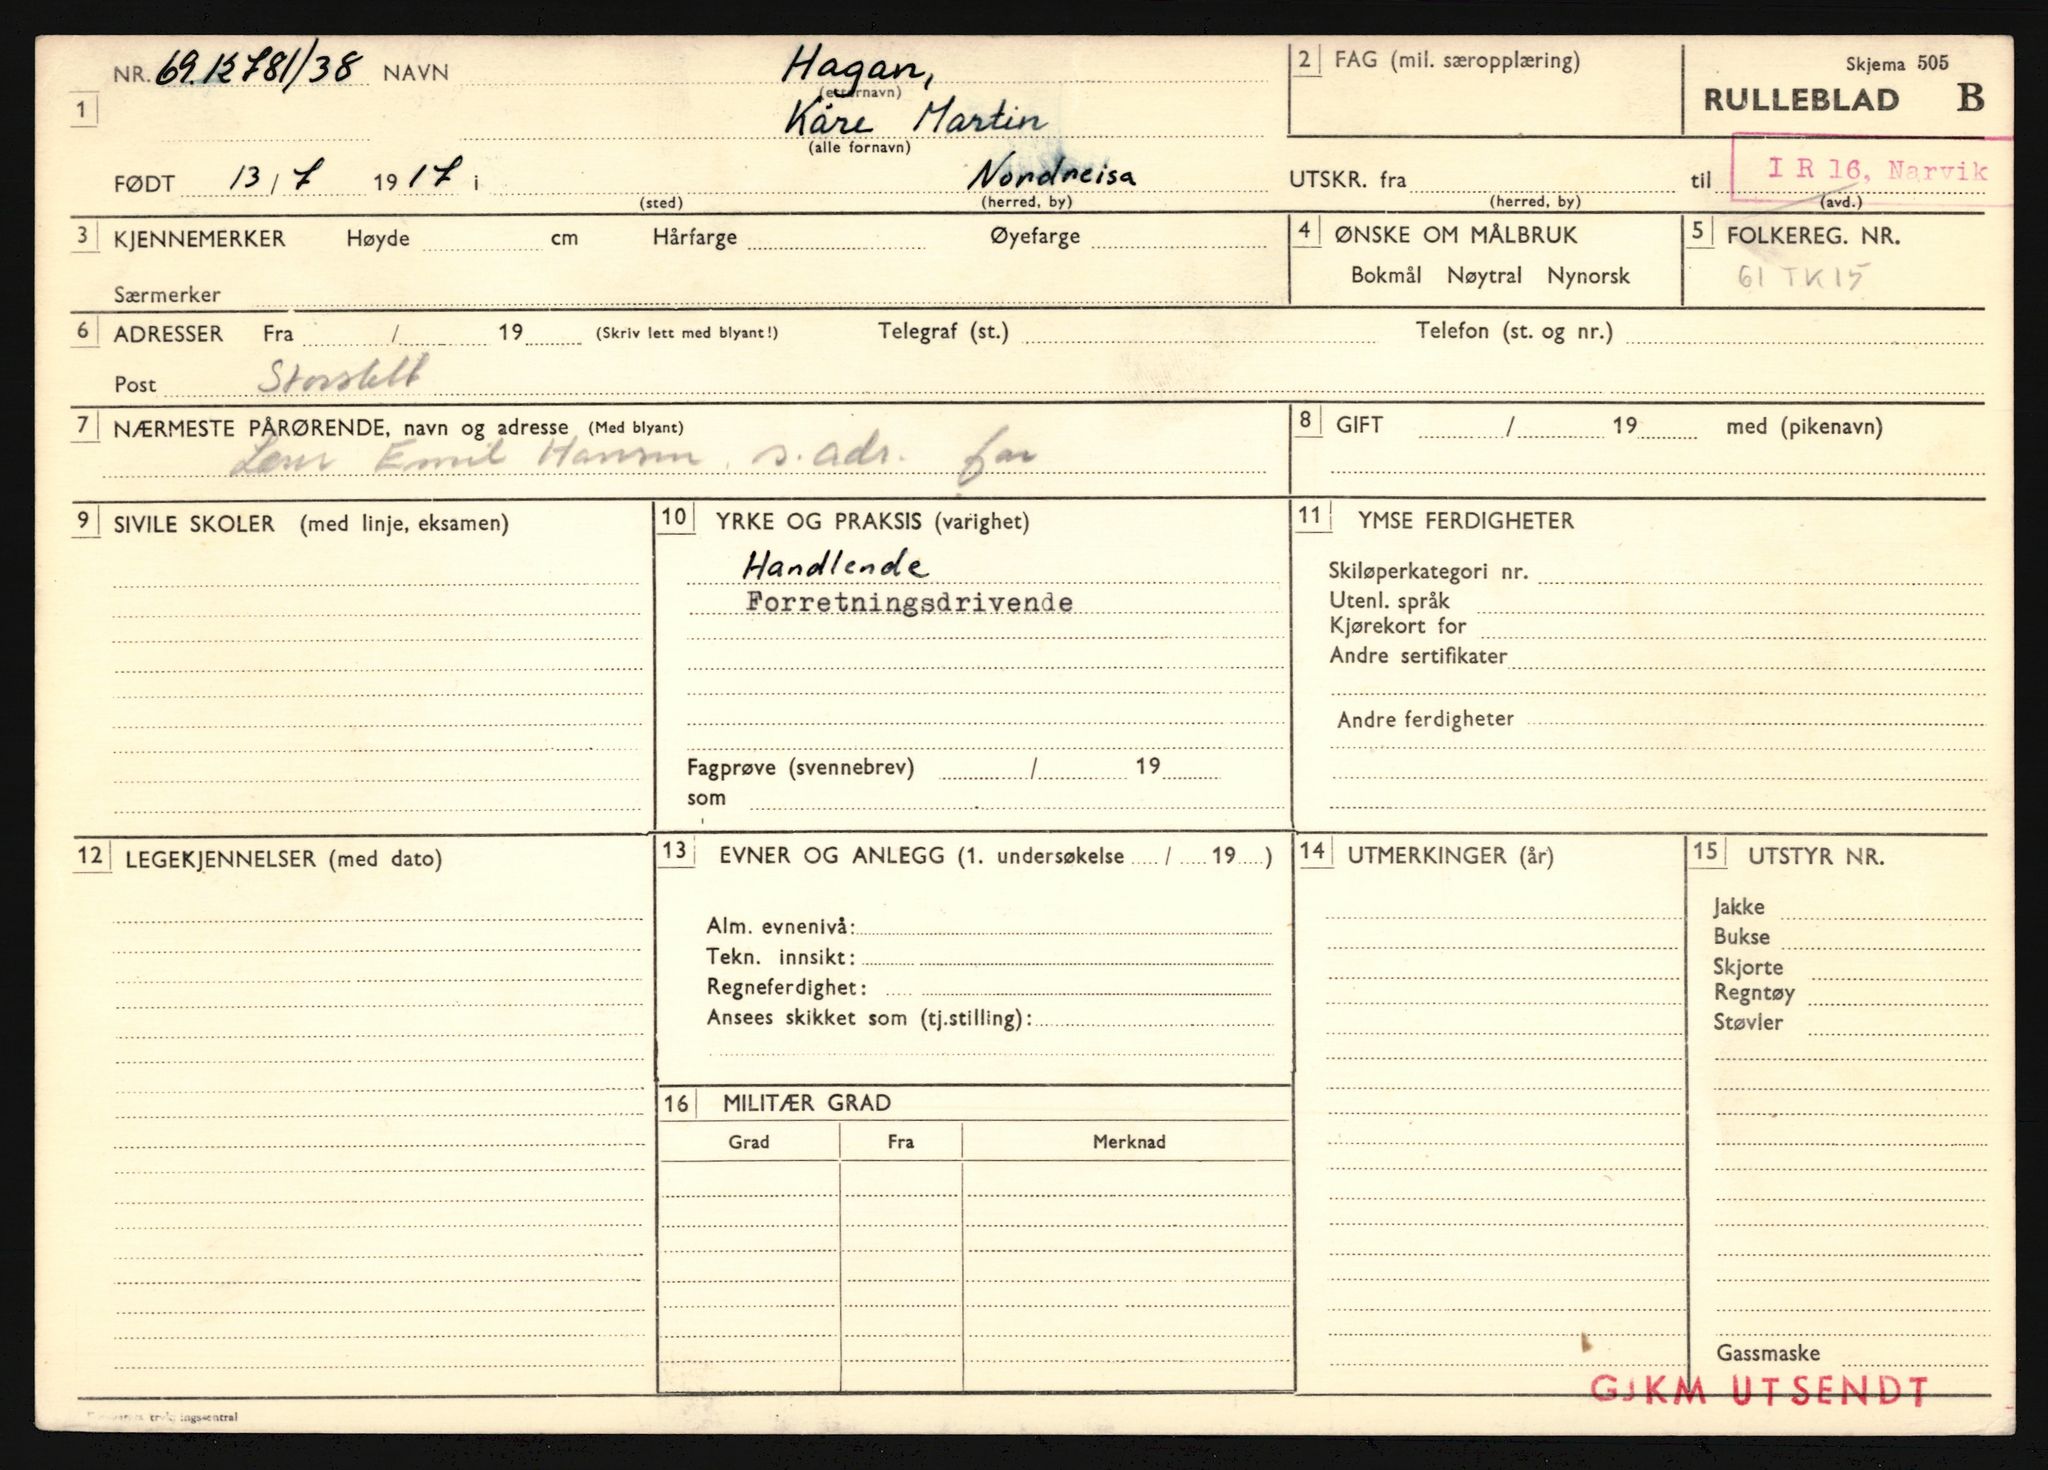 NR. 69 1278 1/38 NAVN Hagan, 2 FAG (mil. særopplæring) Skjema 505
(etternavn) RULLEBLAD B
1 Kåre Martin
(alle fornavn)
FØDT 13/7 1917 i Nordreisa UTSKR. fra til I R 16, Narvik
(sted) (herred, by) (herred, by) (avd.)
3 KJENNEMERKER Høyde cm Hårfarge Øyefarge 4 ØNSKE OM MÅLBRUK 5 FOLKEREG. NR.
Bokmål Nøytral Nynorsk 61 TK 15
Særmerker
6 ADRESSER Fra / 19 (Skriv lett med blyant!) Telegraf (st.) Telefon (st. og nr.)
Post Storslett
7 NÆRMESTE PÅRØRENDE, navn og adresse (Med blyant) 8 GIFT / 19 med (pikenavn)
Emil Hansen s. adr. far
9 SIVILE SKOLER (med linje, eksamen) 10 YRKE OG PRAKSIS (varighet) 11 YMSE FERDIGHETER
Handlende Skiløperkategori nr.
Forretningsdrivende Utenl. språk
Kjørekort for
Andre sertifikater
Andre ferdigheter
Fagprøve (svennebrev) / 19
som
12 LEGEKJENNELSER (med dato) 13 EVNER OG ANLEGG (1. undersøkelse / 19 ) 14 UTMERKINGER (år) 15 UTSTYR NR.
Alm. evnenivå: Jakke
Tekn. innsikt: Bukse
Regneferdighet: Skjorte
Ansees skikket som (tj.stilling): Regntøy
Støvler
16 MILITÆR GRAD
Grad Fra Merknad
Gassmaske
GJKM UTSENDT